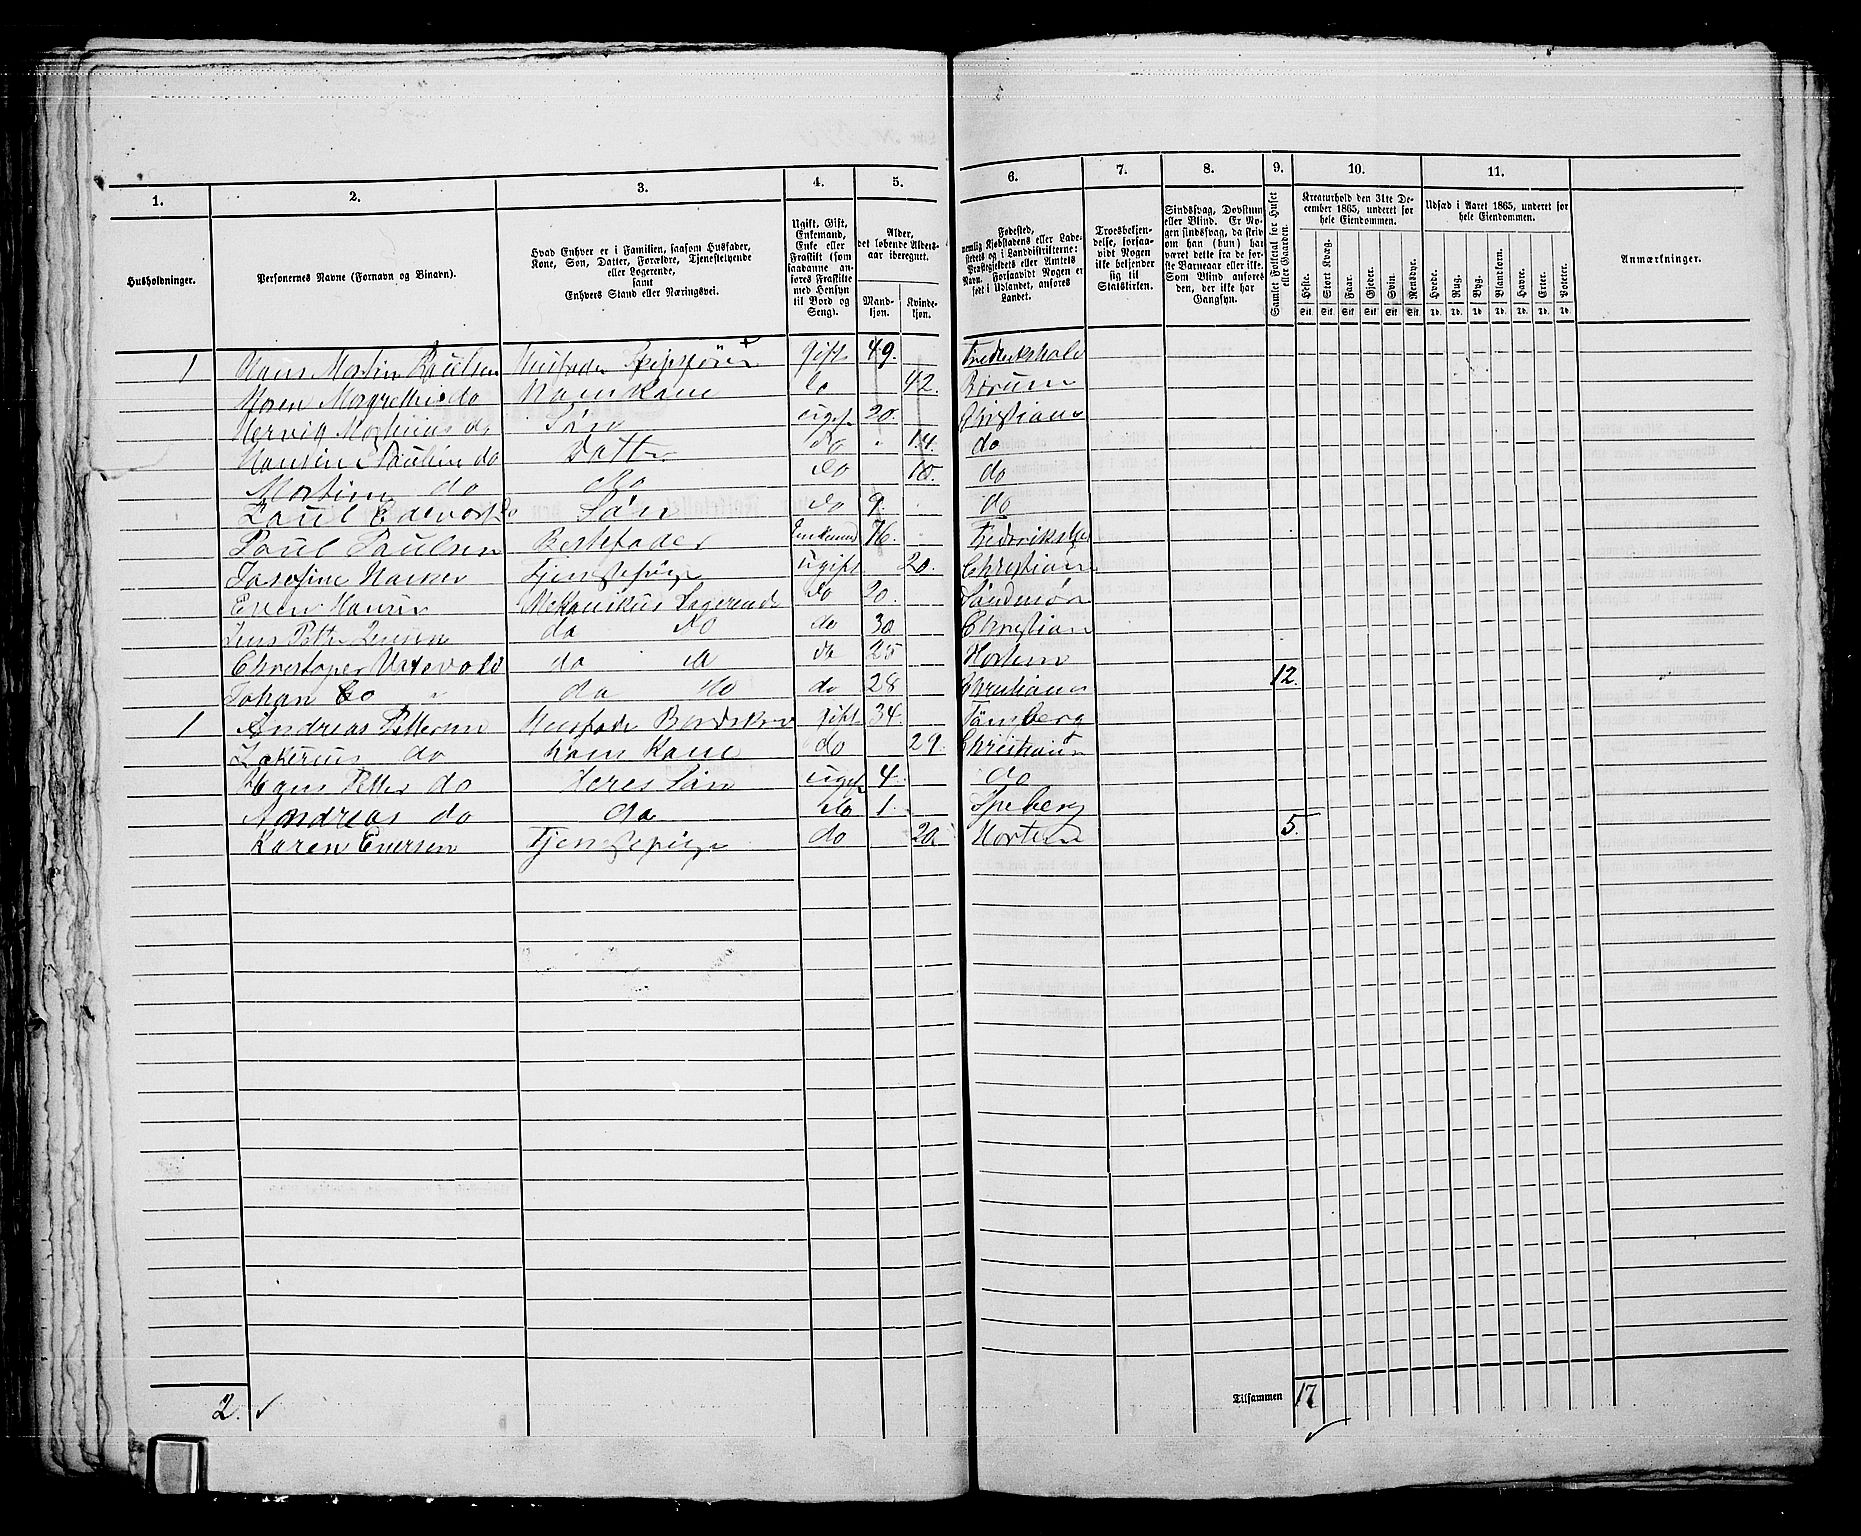 1. 2. 3. 4. 5. 6. 7. 8. 9. 10. 11.
Husholdninger.
Personernes Navne (Fornavn og Binavn).
Hvad Enhver er i Familien, saasom Husfader, Kone, Søn, Datter, Forældre, Tjenestetyende eller Logerende, samt Enhvers Stand eller Næringsvei.
Ugift, Gift, Enkemand, Enke eller Fraskilt (som saadanne anføres Fraskilte med Hensyn til Bord og Seng).
Alder, det løbende Alders-aar iberegnet.
Mand-kjøn. Kvinde-kjøn.
Fødested, nemlig Kjøbstadens eller Ladestedets og i Landdistrikterne: Præstegjeldets eller Amtets Navn. Forsaavidt Nogen er født i Udlandet, anføres Landet.
Troesbekjendelse, forsaavidt Nogen ikke bekjender sig til Statskirken.
Sindssvag, Døvstum eller Blind. Er Nogen sindssvag, da skriv om han (hun) har været dette fra de første Barneaar eller ikke. Som Blind anføres den, der ikke har Gangsyn.
Samlet Folketal for Huset eller Gaarden.
Kreaturhold den 31te December 1865, underet for hele Eiendommen.
Heste. Stort Kvæg. Faar. Gjeder. Svin. Rensdyr.
Stk. Stk. Stk. Stk. Stk. Stk.
Udsæd i Aaret 1865, underet for hele Eiendommen.
Hvede. Rug. Byg. Blandkorn. Havre. Erter. Poteter.
Td. Td. Td. Td. Td. Td. Td.
Anmærkninger.
1 Hans Martin Paulsen Husfader Skipsfører gift 49. Fredrikshald
Maren Margrethe do Hans Kone do 42. Bærum
Martinus do Søn ugift 20. Christiania
Pauline do Datter do 14. do
do do do 10. do
Paul Edevard do Søn do 9. do
Paul Paulsen Bestefader Enkemand 76. Fredriksha
Josefine Tjenstepige ugift 20. Christiania
Hansen Mekanikus Logerende do 20.
Jens Petter Jensen do do do 30 Christian
Christopher do do do 25 Horten 12.
Johan do do do 28 Christiania
1 Andreas Pettersen Husfader gift 34. Tønsberg
do Hans Kone do 29. Christiania
Petter do Deres Søn ugift 4. do
Andreas do do do 1.
Karen Eversen Tjenstepige do 20. Horten 5.
2. Tilsammen 17